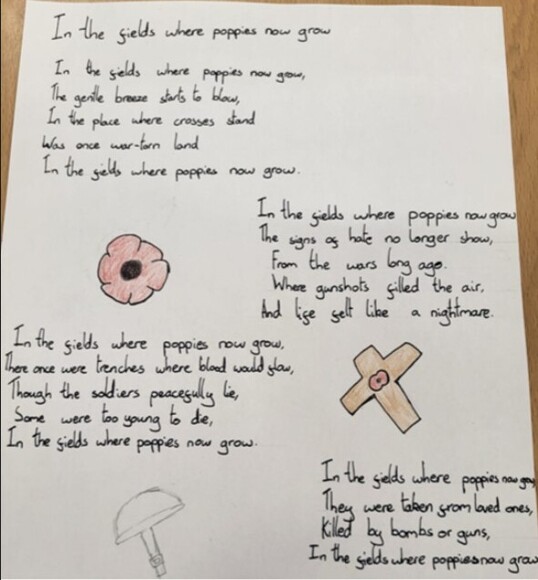 In the fields where poppies now grow
In the fields where poppies now grow,
The gentle breeze starts to blow,
In the place where crosses stand
Was once war-torn land
In the fields where poppies now grow.
In the fields where poppies now grow
The signs of hate no longer show,
From the wars long ago.
Where gunshots filled the air,
And life felt like a nightmare.
In the fields where poppies now grow,
There once were trenches where blood would flow,
Though the soldiers peacefully lie,
Some were too young to die,
In the fields where poppies now grow.
In the fields where poppies now grow,
They were taken from loved ones,
Killed by bombs or guns,
In the fields where poppies now grow